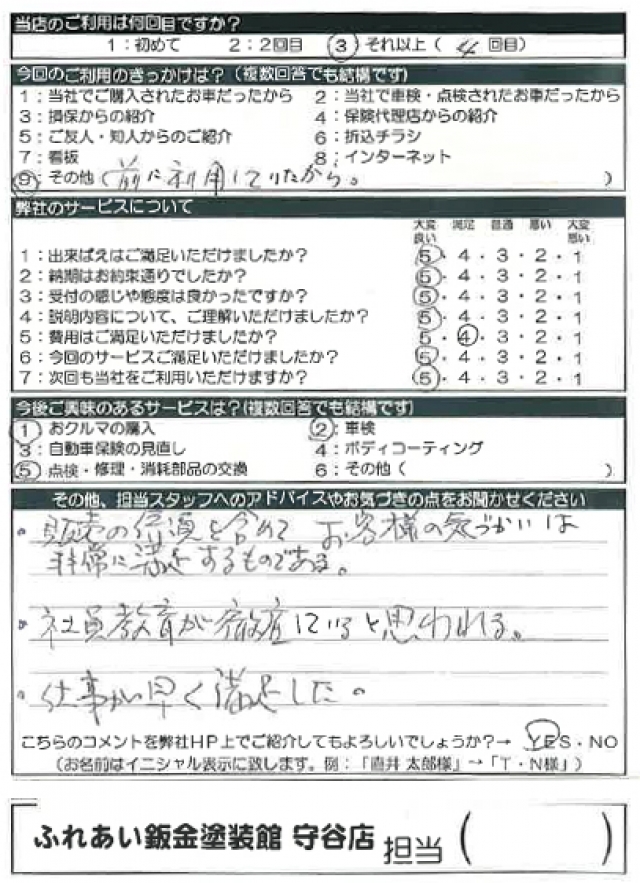 当店のご利用は何回目ですか?
1:初めて 2:2回目 3:それ以上( 4 回目)
今回のご利用のきっかけは?(複数回答でも結構です)
1:当社でご購入されたお車だったから 2:当社で車検・点検されたお車だったから
3:損保からの紹介 4:保険代理店からの紹介
5:ご友人・知人からのご紹介 6:折込チラシ
7:看板 8:インターネット
9:その他(前に利用していたから。)
弊社のサービスについて
大変良い 満足 普通 悪い 大変悪い
1:出来ばえはご満足いただけましたか? 5・4・3・2・1
2:納期はお約束通りでしたか? 5・4・3・2・1
3:受付の感じや態度は良かったですか? 5・4・3・2・1
4:説明内容について、ご理解いただけましたか? 5・4・3・2・1
5:費用はご満足いただけましたか? 5・4・3・2・1
6:今回のサービスご満足いただけましたか? 5・4・3・2・1
7:次回も当社をご利用いただけますか? 5・4・3・2・1
今後ご興味のあるサービスは?(複数回答でも結構です)
1:おクルマの購入 2:車検
3:自動車保険の見直し 4:ボディコーティング
5:点検・修理・消耗部品の交換 6:その他( )
その他、担当スタッフへのアドバイスやお気づきの点をお聞かせください
・販売の を含めて お客様の気づかいは
非常に満足するものである。
・社員教育が徹底していると思われる。
・仕事が早く満足した。
こちらのコメントを弊社HP上でご紹介してもよろしいでしょうか?→ YES・NO
(お名前はイニシャル表示に致します。例:「直井 太郎様」→「T・N様」)
ふれあい鈑金塗装館 守谷店 担当( )